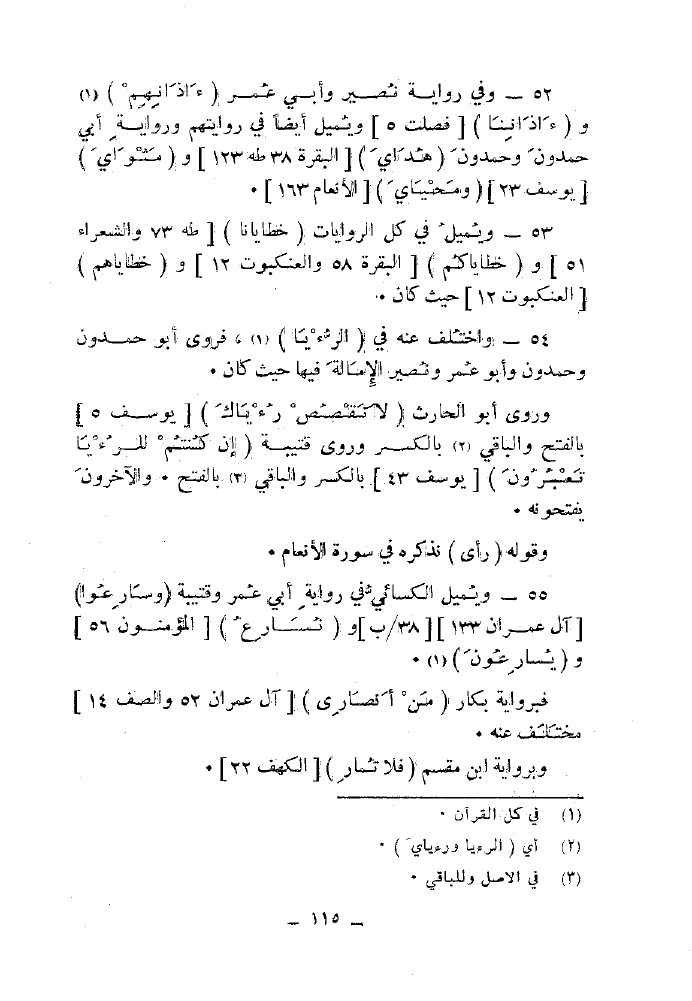 ٥٢ ــ وفي رواية نُصير وأبي عُمر ( ءَاذَانِهِمْ ) (١)
و ( ءَاذَانِنَا ) [ فصلت ٥ ] ويُميل أيضاً في روايتهم وروايةِ أبي
حمدونَ وحمدونَ ( هُدَايَ ) [ البقرة ٣٨ طه ١٢٣ ] و ( مَثْوَايَ )
[ يوسف ٢٣ ] ( ومَحْيَايَ ) [ الأنعام ١٦٣ ] ٠
٥٣ ــ ويُميلُ في كل الروايات ( خطايانا ) [ طه ٧٣ والشعراء
٥١ ] و ( خطاياكُم ) [ البقرة ٥٨ والعنكبوت ١٢ ] و ( خطاياهم )
[ العنكبوت ١٢ ] حيث كان ٠
٥٤ ــ واختُلف عنه في ( الرُءْيَا ) (١) ، فروى أبو حمدون
وحمدون وأبو عُمر ونُصير الإِمالةَ فيها حيث كان ٠
وروى أبو الحارث ( لاَ تَقْصُصْ رُءْيَاكَ ) [ يوسف ٥ ]
بالفتح والباقي (٢) بالكسر وروى قتيبة ( إن كُنْتُمْ للرُءْيَا
تَعْبُرُونَ ) [ يوسف ٤٣ ] بالكسر والباقي (٣) بالفتح ٠ والآخرونَ
يفتحونه ٠
وقوله ( رأى ) نذكره في سورة الأنعام ٠
٥٥ ــ ويُميل الكسائيُّ في روايةِ أبي عُمر وقتيبة (وسارِعُوا)
[ آل عمران ١٣٣ ] [ ٣٨/ب ] و ( نُسَارِعُ ) [ المؤمنون ٥٦ ]
و ( يُسارِعُونَ ) (١) ٠
فبرواية بكار ( مَنْ أَنصارِى ) [ آل عمران ٥٢ والصف ١٤ ]
مختلَف عنه ٠
وبرواية ابن مقسم ( فلا تُمارِ ) [ الكهف ٢٢ ] ٠
(١) في كل القرآن ٠
(٢) أي ( الرءيا ورءيايَ ) ٠
(٣) في الاصل وللباقي ٠
ــ ١١٥ ــ